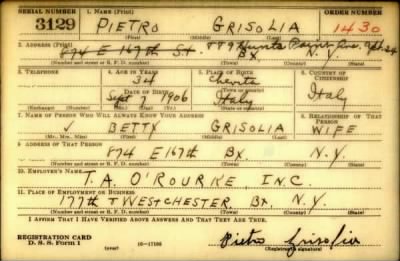 SERIAL NUMBER 1. NAME (Print) ORDER NUMBER
3129 PIETRO GRISOLIA 1430
(First) (Middle) (Last)
2. ADDRESS (Print)
874 E 167th St. 879 Hunts Point Ave. Apt. 24
BX N.Y.
(Number and street or R. F. D. number) (Town) (County) (State)
3. TELEPHONE 4. AGE IN YEARS 5. PLACE OF BIRTH 6. COUNTRY OF CITIZENSHIP
34
DATE OF BIRTH (Town or county)
Sept 1906 Italy Italy
(Exchange) (Number) (Mo.) (Day) (Yr.) (State or country)
7. NAME OF PERSON WHO WILL ALWAYS KNOW YOUR ADDRESS 8. RELATIONSHIP OF THAT PERSON
✓ BETTY GRISOLIA WIFE
(Mr., Mrs., Miss) (First) (Middle) (Last)
9. ADDRESS OF THAT PERSON
874 E 167th BX. N.Y.
(Number and street or R. F. D. number) (Town) (County) (State)
10. EMPLOYER'S NAME
T.A. O'ROURKE, INC.
11. PLACE OF EMPLOYMENT OR BUSINESS
177th + WESTCHESTER BX. N.Y.
(Number and street or R. F. D. number) (Town) (County) (State)
I AFFIRM THAT I HAVE VERIFIED ABOVE ANSWERS AND THAT THEY ARE TRUE.
REGISTRATION CARD
D. S. S. Form 1 (over) 16-17105 Pietro Grisolia
(Registrant's signature)